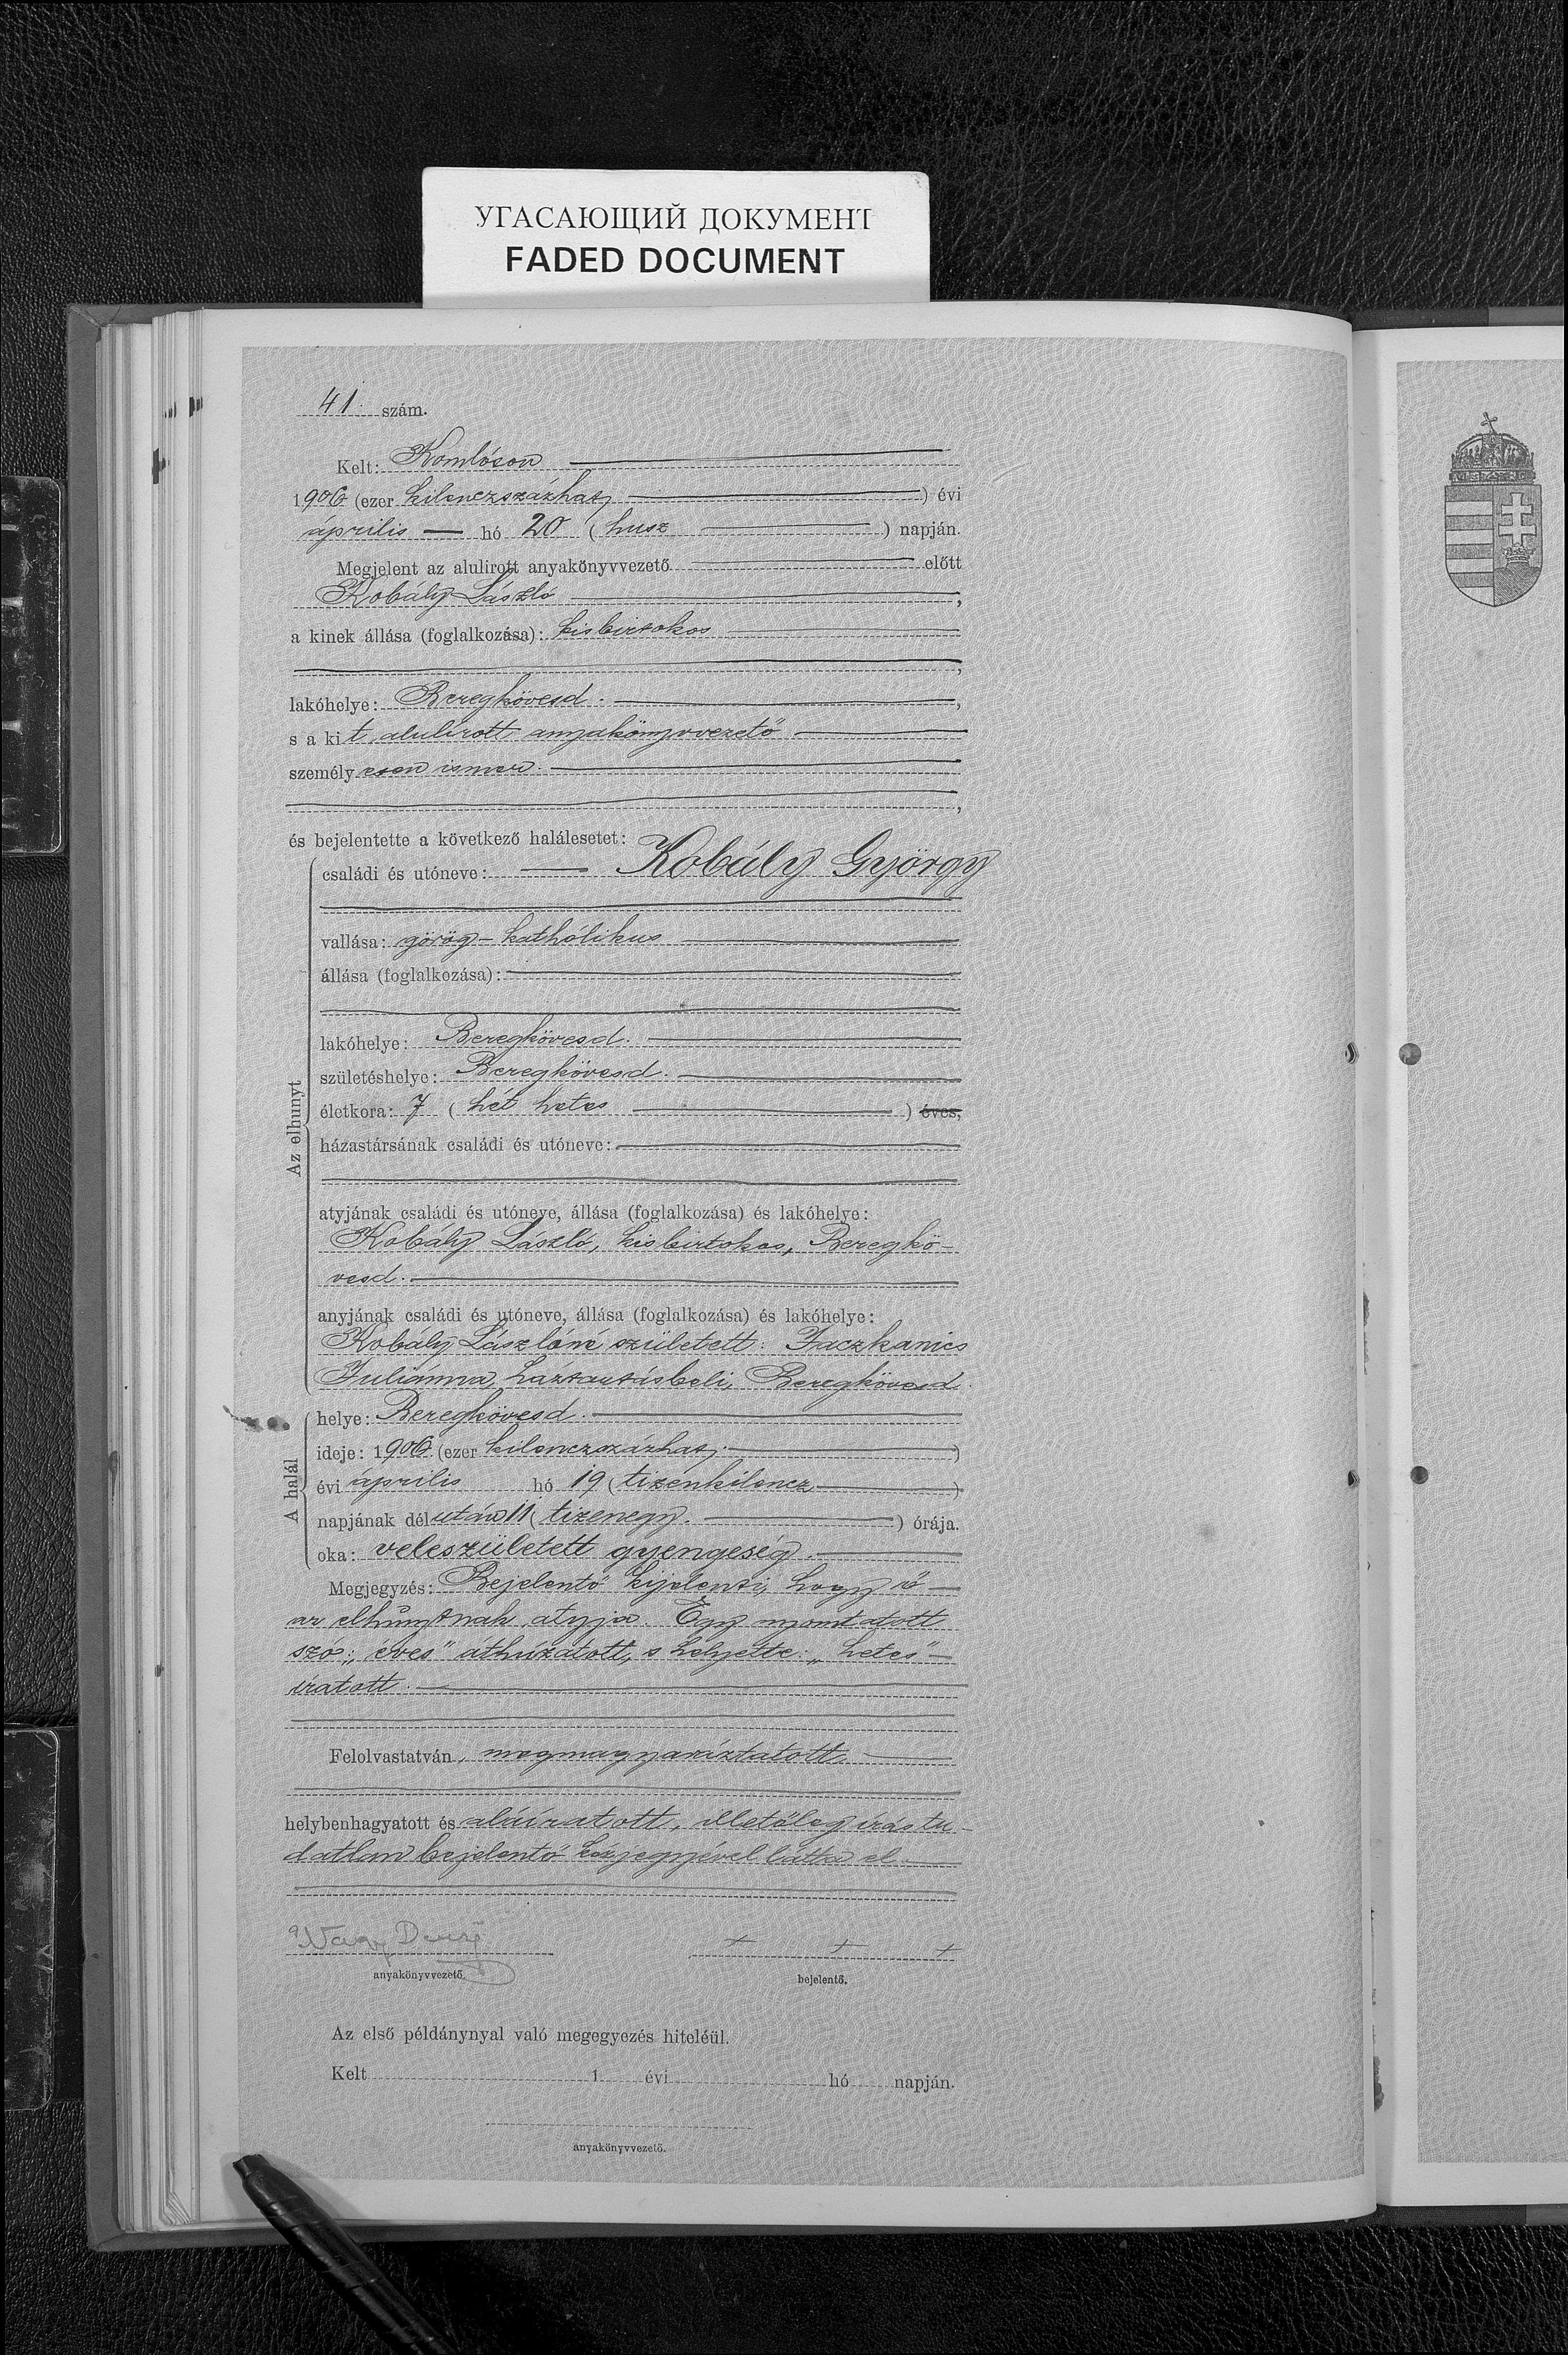 УГАСАЮЩИЙ ДОКУМЕНТ
FADED DOCUMENT
41 szám.
Kelt: Komlóson
1906 (ezer kilenczszázhat) évi
április hó 20 (husz) napján.
Megjelent az alulirott anyakönyvvezető előtt
Kobály László,
a kinek állása (foglalkozása): kisbirtokos
,
lakóhelye: Beregkövesd.,
s a kit alulírott anyakönyvvezető
személyesen ismer.
,
és bejelentette a következő halálesetet:
családi és utóneve: Kobály György
vallása: görög-kathólikus
állása (foglalkozása):
lakóhelye: Beregkövesd.
születéshelye: Beregkövesd.
Az elhunyt
életkora: 7 (hét hetes) éves,
házastársának családi és utóneve:
atyjának családi és utóneve, állása (foglalkozása) és lakóhelye:
Kobály László, kisbirtokos, Beregkö-
vesd.
anyjának családi és utóneve, állása (foglalkozása) és lakóhelye:
Kobály Lászlóné született: Jaczkanics
Juliánna, háztartásbeli, Beregkövesd.
helye: Beregkövesd.
ideje: 1906 (ezer kilenczszázhat.)
A halál
évi április hó 19 (tizenkilencz)
napjának délután 11 (tizenegy.) órája.
oka: veleszületett gyengeség.
Megjegyzés: Bejelentő kijelenti, hogy ő
az elhunytnak atyja. Egy nyomtatott
szó: „éves" áthúzatott, s helyette: „hetes"
íratott.
Felolvastatván, megmagyaráztatott
helybenhagyatott és aláíratott, illetőleg írástu-
datlan bejelentő kézjegyével látta el.
Nagy Dezső + + +
anyakönyvvezető. bejelentő.
Az első példánynyal való megegyezés hiteléül.
Kelt 1 évi hó napján.
anyakönyvvezető.